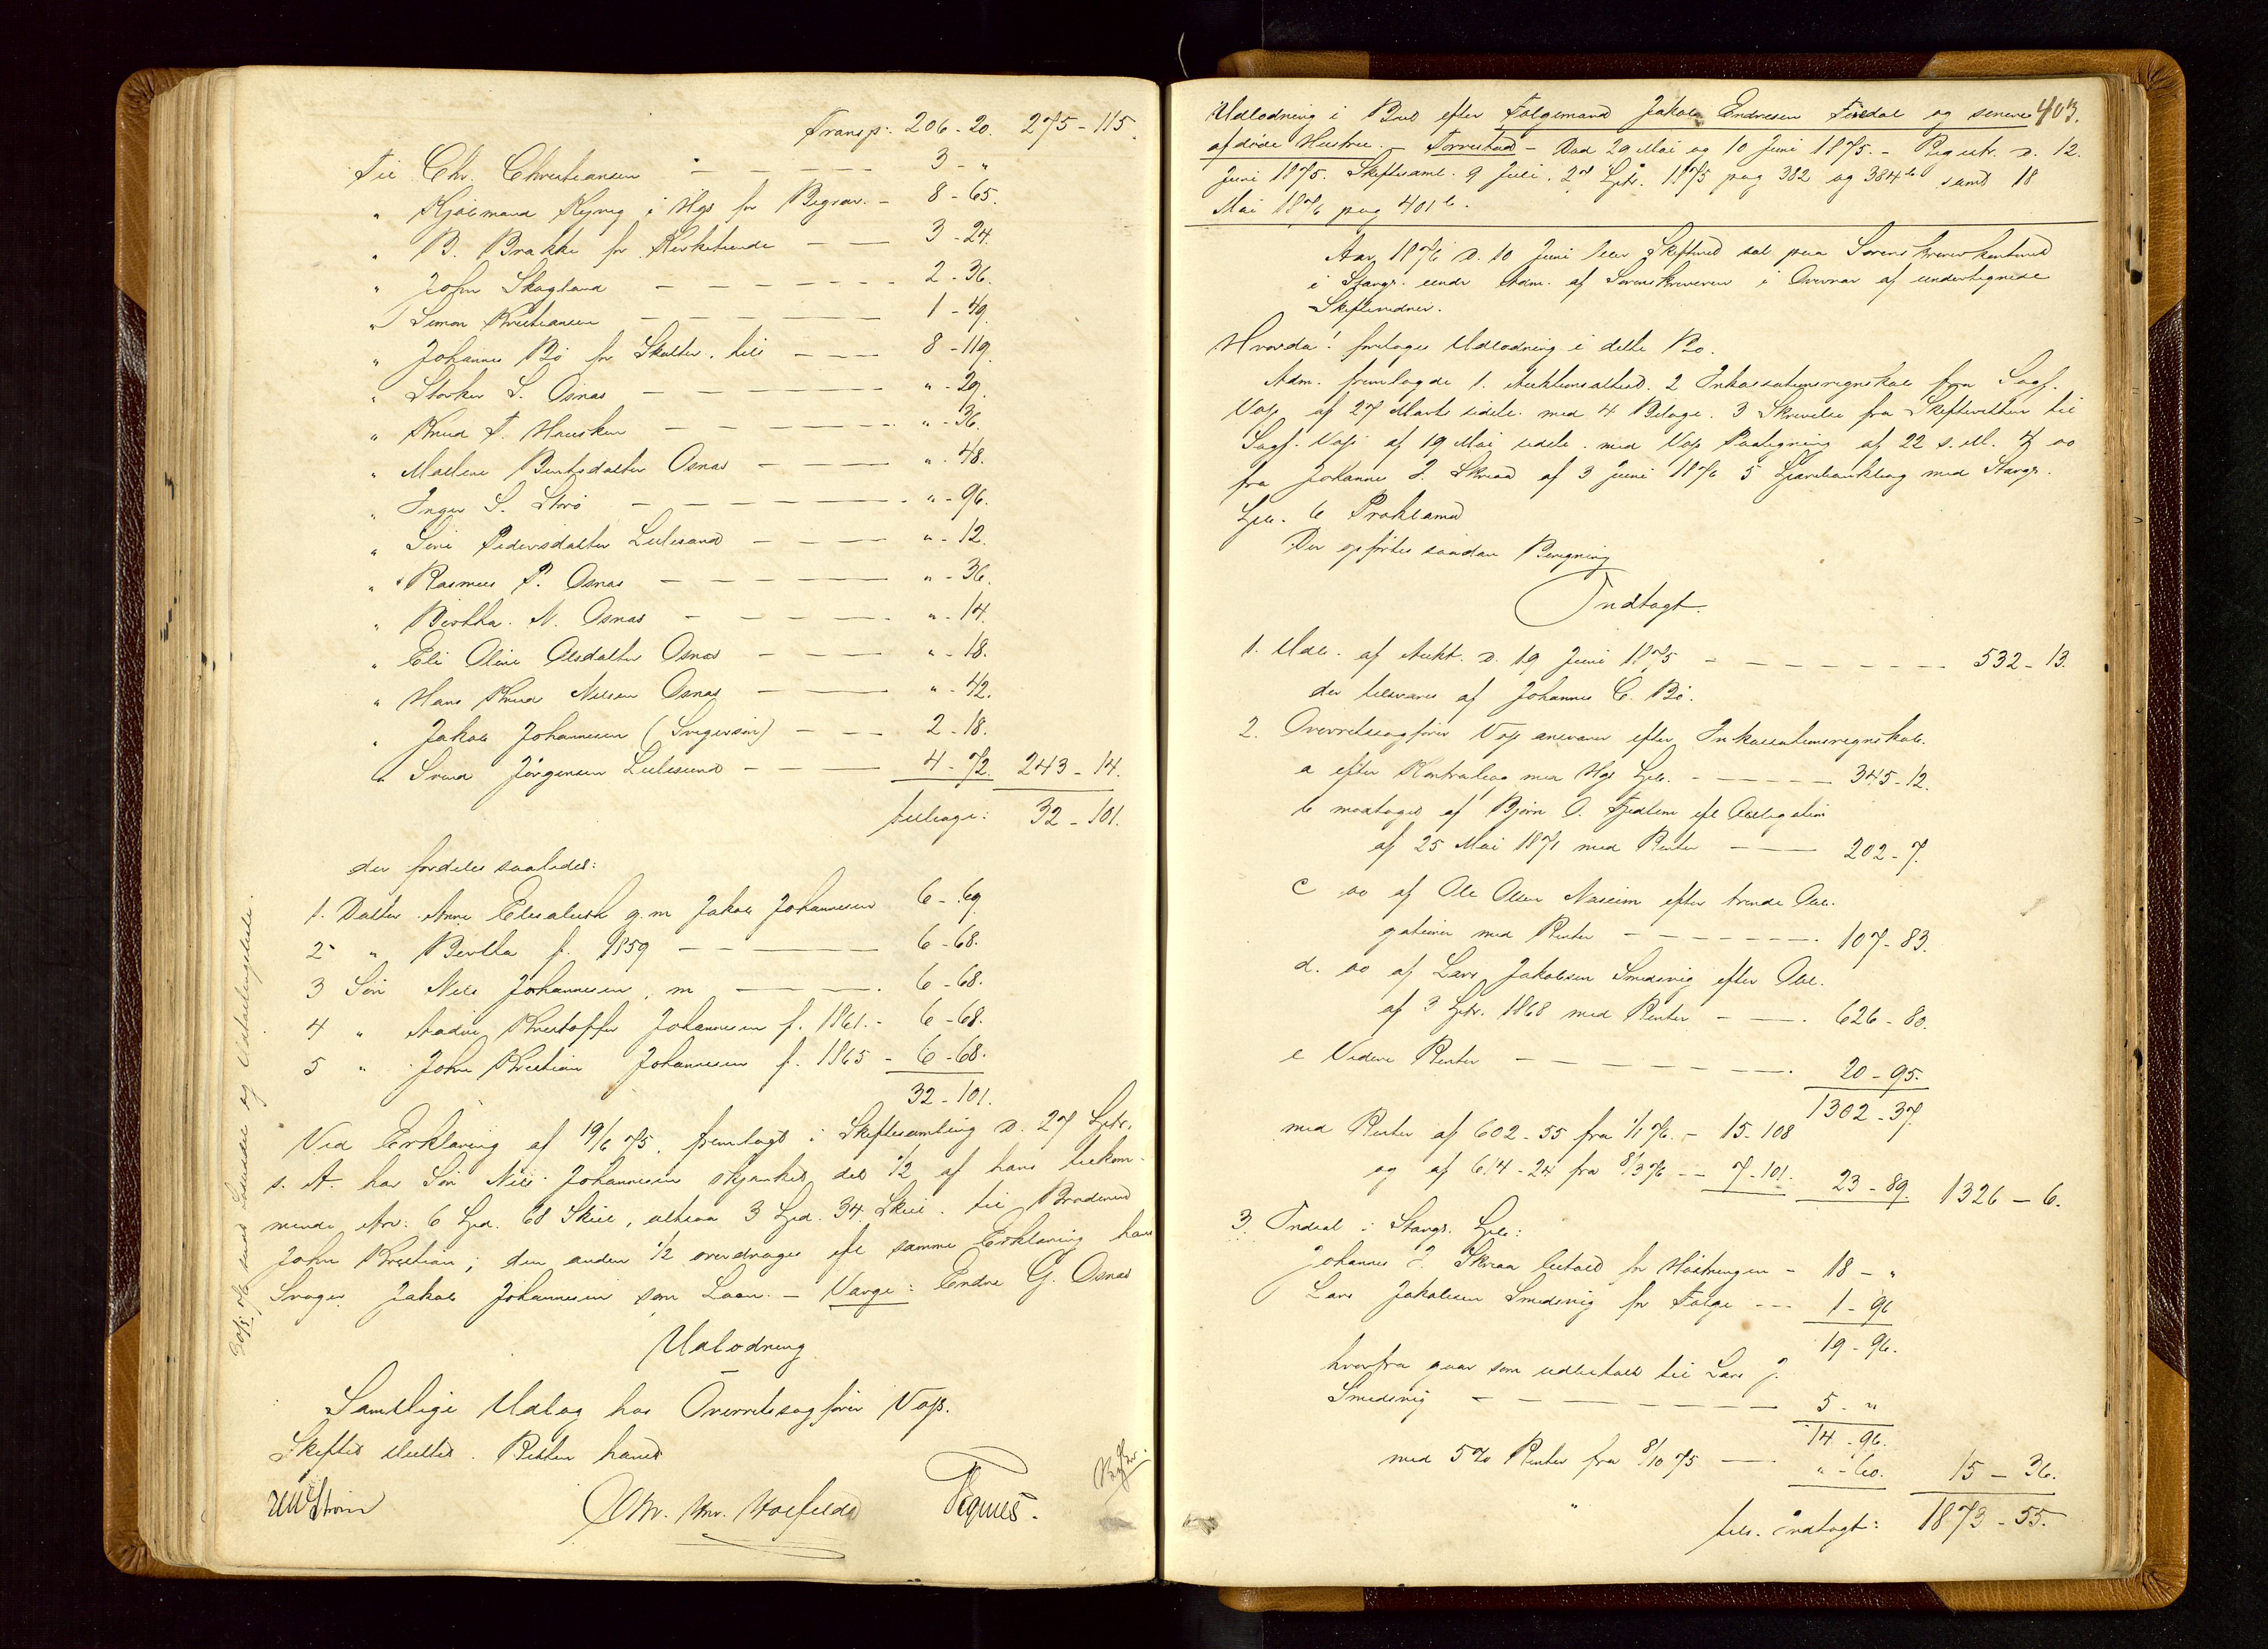 Transp: 206 - 20. 275 - 115.
Til Chr. Christiansen - - - - - 3 - "
" Kjøbmand Kyvig i Hgs for Begrav. - 8 - 65.
" B. Brække for Kirketiende - - - 3 - 24.
" John Skogland - - - - - - - 2 - 36.
" Simon Kristiansen - - - - - - 1 - 49.
" Johannes Bø for Skatter - - - 8 - 119
" Storker S. Osnæs - - - - - - " - 29.
" Knud T. Hausken - - - - - - " - 36.
" Malene Bentsdatter Osnæs - - - - " - 48.
" Inger S. Storø - - - - - - - " - 96.
" Sini Pedersdatter Lillesund - - - - " - 12.
" Rasmus P. Osnæs - - - - - - " - 36.
" Bertha N. Osnæs - - - - - - " - 14.
" Eli Oline Olsdatter Osnæs - - - " - 18.
" Hans Knud Nilsen Osnæs - - - " - 42.
" Jakob Johannesen (Svigersøn) - - - 2 - 18.
" Svend Jørgensen Lillesund - - - 4 - 72. 243 - 14.
tilbage: 32 - 101.
der fordeles saaledes:
1. Datter Anne Elisabeth g. m Jakob Johannesen 6 - 69
2 " Bertha f. 1859 - - - - - 6 - 68.
3 Søn Nils Johannesen, m - - - 6 - 68.
4 " Andrias Kristoffer Johannesen f. 1861. - 6 - 68.
5 " John Kristian Johannesen f. 1865 - 6 - 68.
32 - 101.
Ved Erklæring af 19/6 75, fremlagt i Skiftesamling d. 27 Sptr.
s. A. har Søn Nils Johannesen skjænket det 1/2 af hans tilkom-
mende Arv: 6 Spd. 68 Skill, altsaa 3 Spd. 34 Skill. til Broderen
John Kristian; den anden 1/2 overdrages eft samme Erklæring hans
Svoger Jakob Johannesen som Laan. - Værge: Endre G. Osnæs
Udlodning
Samtlige Udlæg hos Overretssagfører Vogt.
Skiftet sluttet. Retten hævet
403.
Udlodning i Boet efter Følgemand Jakob Endresen Tisdal og senere
afdøde Hustru. - Torvestad - Død 29 Mai og 10 Juni 1875. - Registr. d. 12.
Juni 1875. Skiftesaml. 9 Juli. 27 Sptr. 1875 pag 382 og 384 b samt 18
Mai 1876 pag 401 b.
Aar 1876 d. 10 Juni blev Skifteret sat paa Sorenskriverkontoret
i Stavgr. under Adm. af Sorenskriveren i Overvær af undertegnede
Skiftevidner.
Hvorda! foretoges Udlodning i dette Bo.
Adm. fremlagde 1. Auktionsattest. 2 Inkassationsregnskab fra Sagf.
Vogt af 27 Marts sidstl. med 4 Bilage. 3 Skrivelse fra Skifteretten til
Sagf. Vogt af 19 Mai sidstl. med Vogts Paategning af 22 s. M. 4 do
fra Johannes J. Skraa af 3 Juni 1876 5 Sparebankbog med Stavgr.
Spb. 6 Proklama
Der opførtes saadan Beregning
Indtægt.
1. Udb. af Aukt. d. 19 Juni 1875 - - - - - - 532 - 13.
der tilsvares af Johannes C. Bø.
2. Overretssagfører Vogt ansvarer efter Inkassationsregnskab.
a efter Kontrabog med Hgs Spb. - - - - - 345 - 12.
b modtaget af Bjørn O. Fjedtun eft Obligation
af 25 Mai 1871 med Renter - - - 202 - 7.
c do af Ole Olsen Naseim efter trende Obli-
gationer med Renter - - - - - - 107 - 83.
d. do af Lars Jakobsen Smedsvig efter Obl.
af 3 Sptr. 1868 med Renter - - - 626 - 80.
e Videre Renter - - - - - - - 20 - 95.
1302 - 37.
med Renter af 602 - 55 fra 1/1 76. - 15 - 108
og af 614 - 24 fra 8/3 76 - - 7 - 101. 23 - 89. 1326 - 6.
3. Indsat i Stavgr. Spb:
Johannes J. Skraa betalt for Høstningen - 18 - "
Lars Jakobsen Smedsvig for Følge - - - 1 - 96
19 - 96.
hvorfra gaar som udbetalt til Lars J.
Smedsvig - - - - - - - 5 - "
14 - 96.
med 5% Renter fra 8/10 75 - - " - 60. 15 - 36.
tils. indtægt: 1873 - 55.